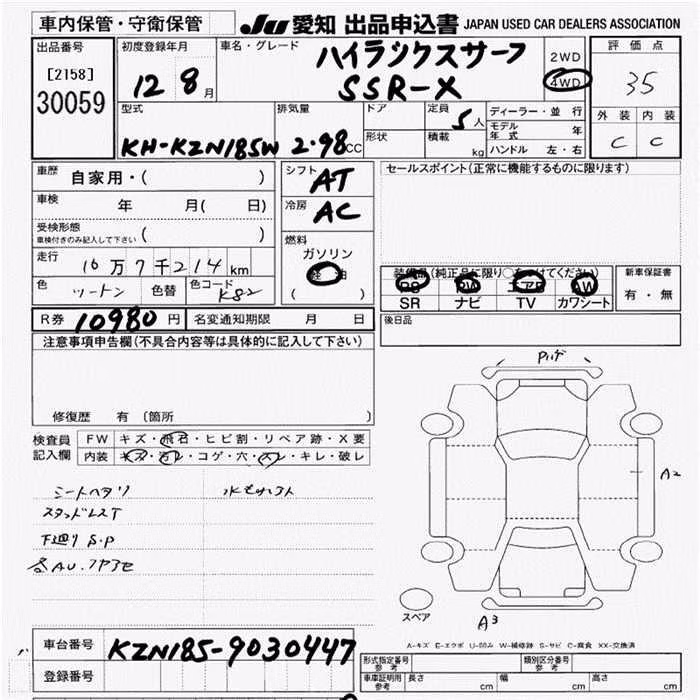 車内保管・守衛保管
JU 愛知 出品申込書 JAPAN USED CAR DEALERS ASSOCIATION
出品番号
[2158]
30059
初度登録年月
12 8月
車名・グレード
ハイラックスサーフ
SSR-X
2WD
4WD
評価点
35
外装 内装
C C
型式
KH-KZN185W
排気量
2.98CC
ドア
形状
定員
5人
積載
kg
ディーラー・並行
モデル年式 年
ハンドル 左・右
車歴
自家用・( )
車検
年 月( 日)
受検形態
車検付きのみ記入して下さい ( )
走行
16万7千214km
色
ツートン
色替
色コード
K82
シフト
AT
冷房
AC
燃料
ガソリン
軽油
( )
セールスポイント(正常に機能するものに限ります)
装備品(純正品に限り○をつけてください)
PS PW エアB AW
SR ナビ TV カワシート
新車保証書
有・無
後日品
R券 10980円 名変通知期限 月 日
注意事項申告欄(不具合内容等は具体的に記入して下さい)
修復歴 有 〔箇所
検査員
記入欄
FW キズ・飛石・ヒビ割・リペア跡・X要
内装 キズ・汚レ・コゲ・穴・スレ・キレ・破レ
シートヘタリ
スタッドレスT
下廻りS.P
A2
A3
スペア
A-キズ E-エクボ U-凹み W-補修跡 S-サビ C-腐食 XX-交換済
車台番号
KZN185-9030447
登録番号
形式指定番号
参考
類別区分番号
参考
車庫証明用
参考
長さ cm 幅 cm 高さ cm